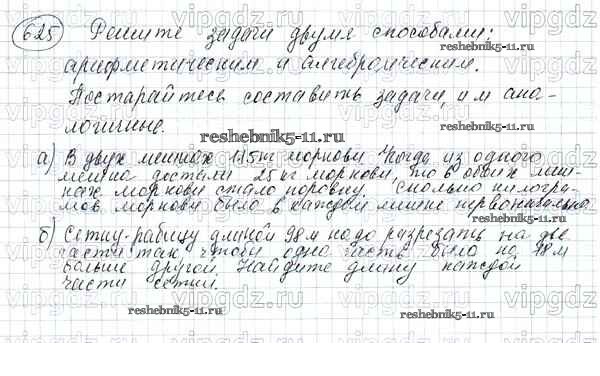 625 Решите задачи двумя способами:
арифметическим и алгебраическим.
Постарайтесь составить задачи, им ана-
логичные.
а) В двух мешках 115 кг моркови. Когда из одного
мешка достали 25 кг моркови, то в обоих меш-
ках моркови стало поровну. Сколько килограм-
мов моркови было в каждом мешке первоначально.
б) Сетку-рабицу длиной 98 м надо разрезать на две
части так, чтобы одна часть была на 18 м
больше другой. Найдите длину каждой
части сетки.
vipgdz.ru
reshebnik5-11.ru
reshebnik5-11.ru
reshebnik5-11.ru
reshebnik5-11.ru